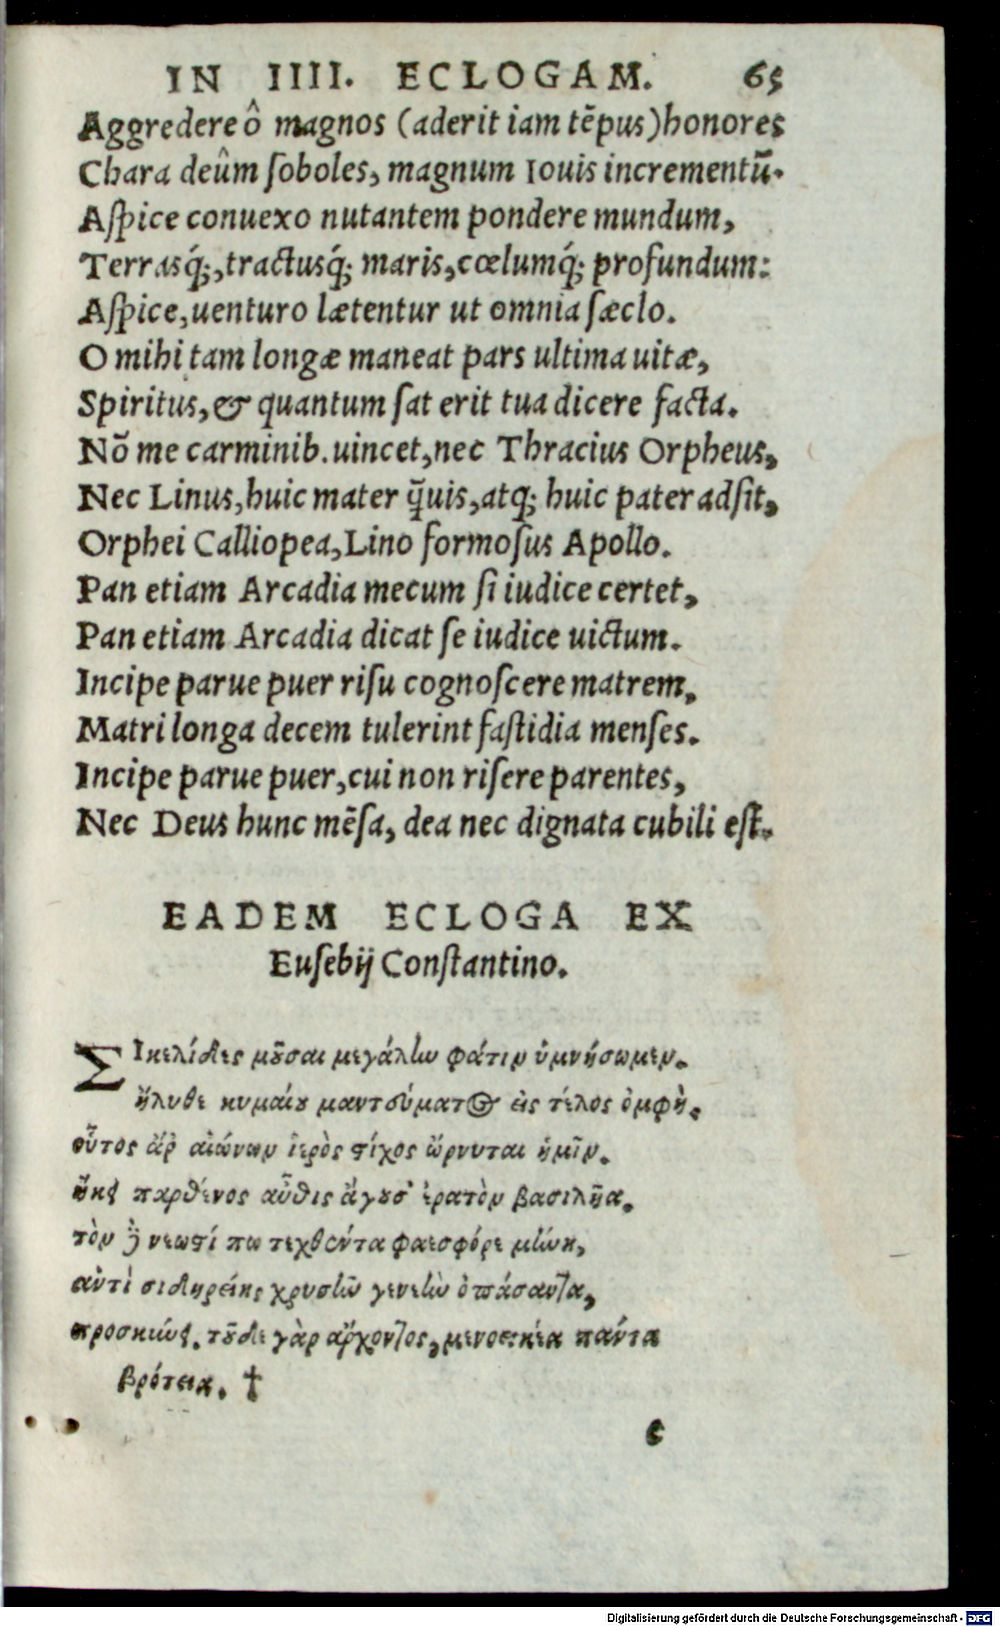 IN IIII. ECLOGAM. 65
Aggredere ô magnos (aderit iam tẽpus) honores
Chara deûm ſoboles, magnum Iouis incrementũ.
Aſpice conuexo nutantem pondere mundum,
Terrasq́;, tractusq́; maris, cœlumq́; profundum:
Aſpice, uenturo lætentur ut omnia ſæclo.
O mihi tam longæ maneat pars ultima uitæ,
Spiritus, & quantum ſat erit tua dicere facta.
Nõ me carminib. uincet, nec Thracius Orpheus,
Nec Linus, huic mater q̃uis, atq; huic pater adſit,
Orphei Calliopea, Lino formoſus Apollo.
Pan etiam Arcadia mecum ſi iudice certet,
Pan etiam Arcadia dicat ſe iudice uictum.
Incipe parue puer riſu cognoſcere matrem,
Matri longa decem tulerint faſtidia menſes.
Incipe parue puer, cui non riſere parentes,
Nec Deus hunc mẽſa, dea nec dignata cubili eſt.
EADEM ECLOGA EX
Euſebij Conſtantino.
ΣΙκελίδες μοῦσαι μεγάλην φάτιν ὑμνήσωμεν.
ἤλυθε κυμαίου μαντεύματος εἰς τέλος ὀμφή.
οὗτος ἄρ αἰώνων ἱερὸς στίχος ὤρνυται ἡμῖν.
ἥκει παρθένος αὖθις ἄγουσ' ἐρατὸν βασιλῆα.
τὸν δὲ νεωστί πω τεχθέντα φαεσφόρε μήνη,
αὐτὶ σιδηρείης χρυσῆν γενεὴν ὀπάσαντα,
προσκύνει. τοῦδε γὰρ ἄρχοντος, πάντα
βρότεια. †
e
Digitalisierung gefördert durch die Deutsche Forschungsgemeinschaft - DFG